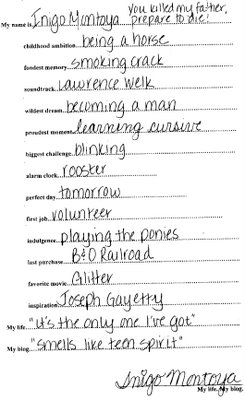 you killed my father,
My name is Inigo Montoya prepare to die!
childhood ambition being a horse
fondest memory smoking crack
soundtrack Lawrence Welk
wildest dream becoming a man
proudest moment learning cursive
biggest challenge blinking
alarm clock rooster
perfect day tomorrow
first job volunteer
indulgence playing the ponies
last purchase B&O Railroad
favorite movie Glitter
inspiration Joseph Gayetty
My life "it's the only one I've got"
My blog "smells like teen spirit"
Inigo Montoya
My life. My blog.